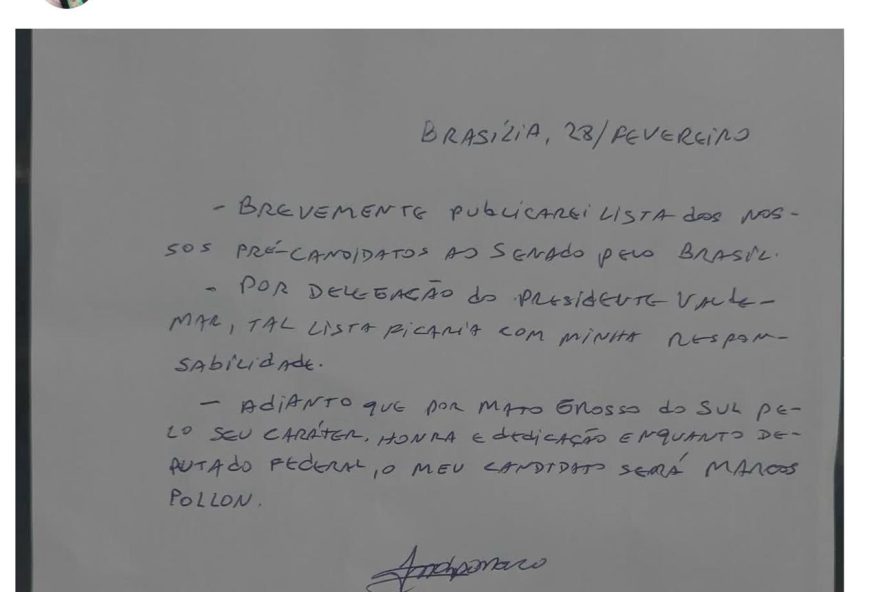 BRASÍLIA, 28/FEVEREIRO
- BREVEMENTE PUBLICAREI LISTA dos NOS-
SOS PRÉ-CANDIDATOS AO SENADO PELO BRASIL.
- POR DELEGAÇÃO do PRESIDENTE VALDE-
MAR, TAL LISTA FICARIA COM MINHA RESPON-
SABILIDADE.
- ADIANTO QUE POR MATO GROSSO do SUL PE-
LO SEU CARÁTER, HONRA E dEdICAÇÃO ENQUANTO DE-
PUTADO FEDERAL, O MEU CANDIDATO SERÁ MARCOS
POLLON.